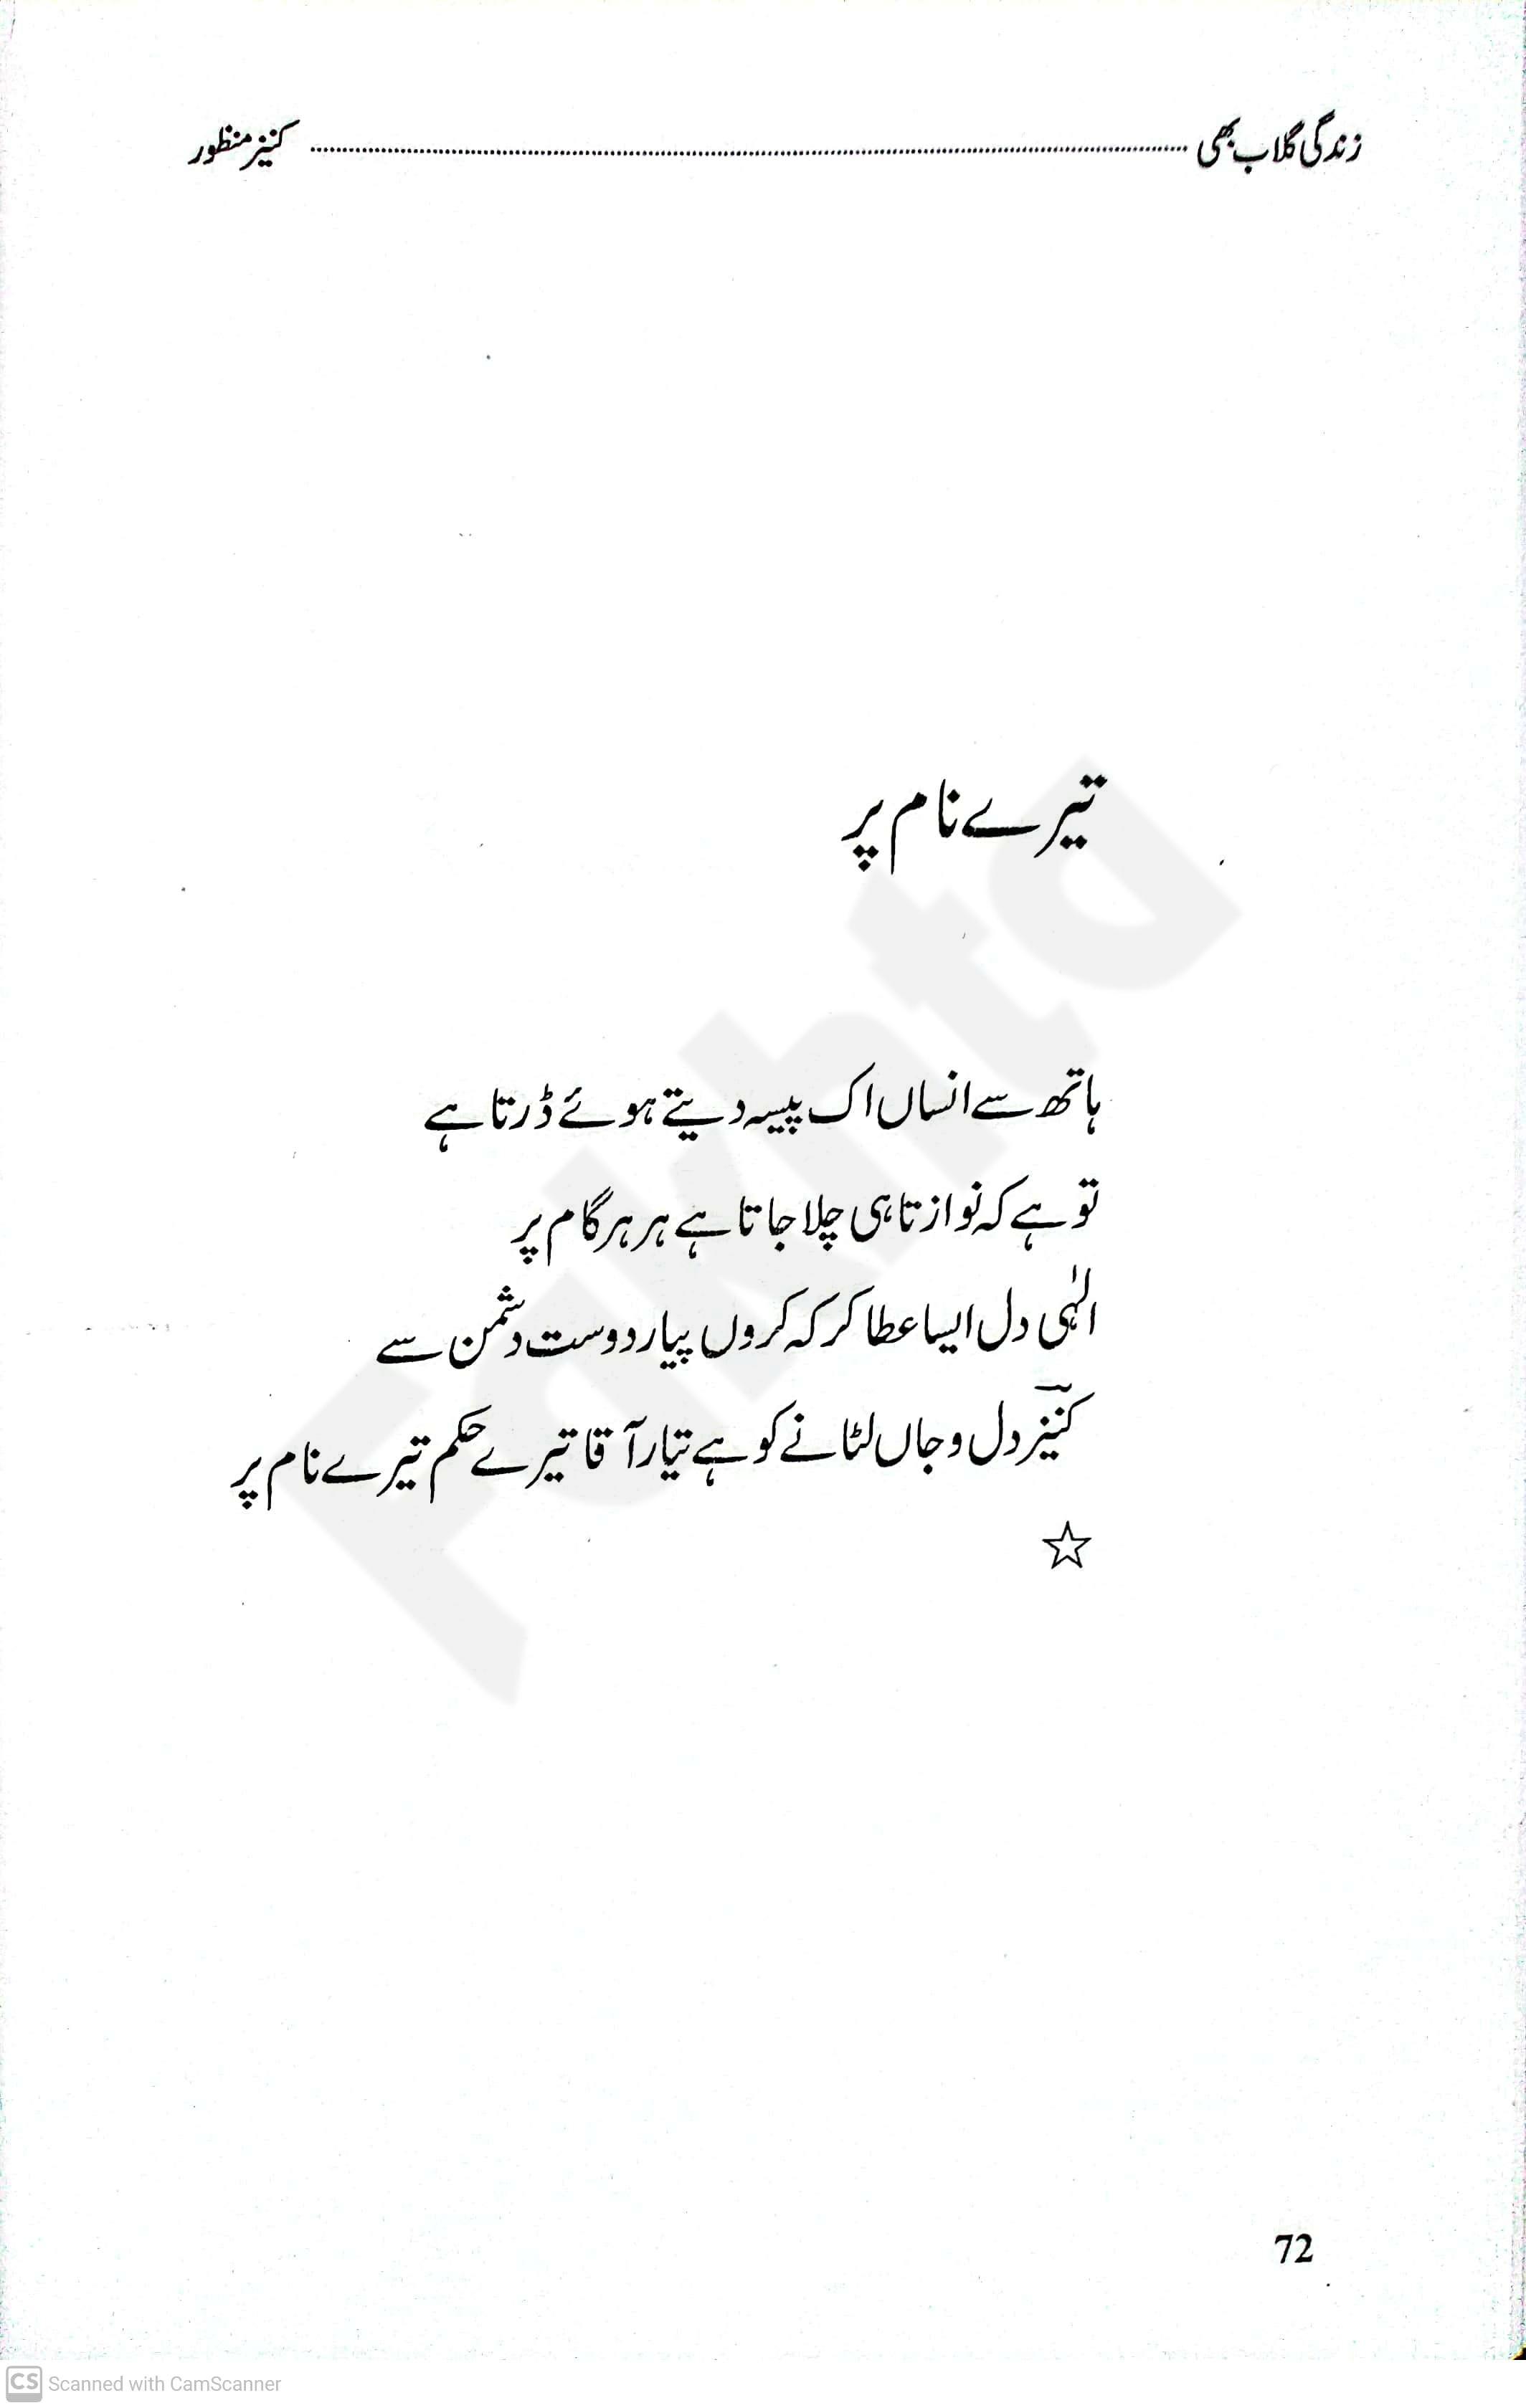 زندگی گلاب بھی ........ کنیز منظور
تیرے نام پر
ہاتھ سے انساں اک پیسہ دیتے ہوئے ڈرتا ہے
تو ہے کہ نوازتا ہی چلا جاتا ہے ہر ہر گام پر
الٰہی دل ایسا عطا کر کہ کروں پیار دوست دشمن سے
کنیزؔ دل و جاں لٹانے کو ہے تیار آقا تیرے حکم تیرے نام پر
☆
Fakhta
72
CS Scanned with CamScanner